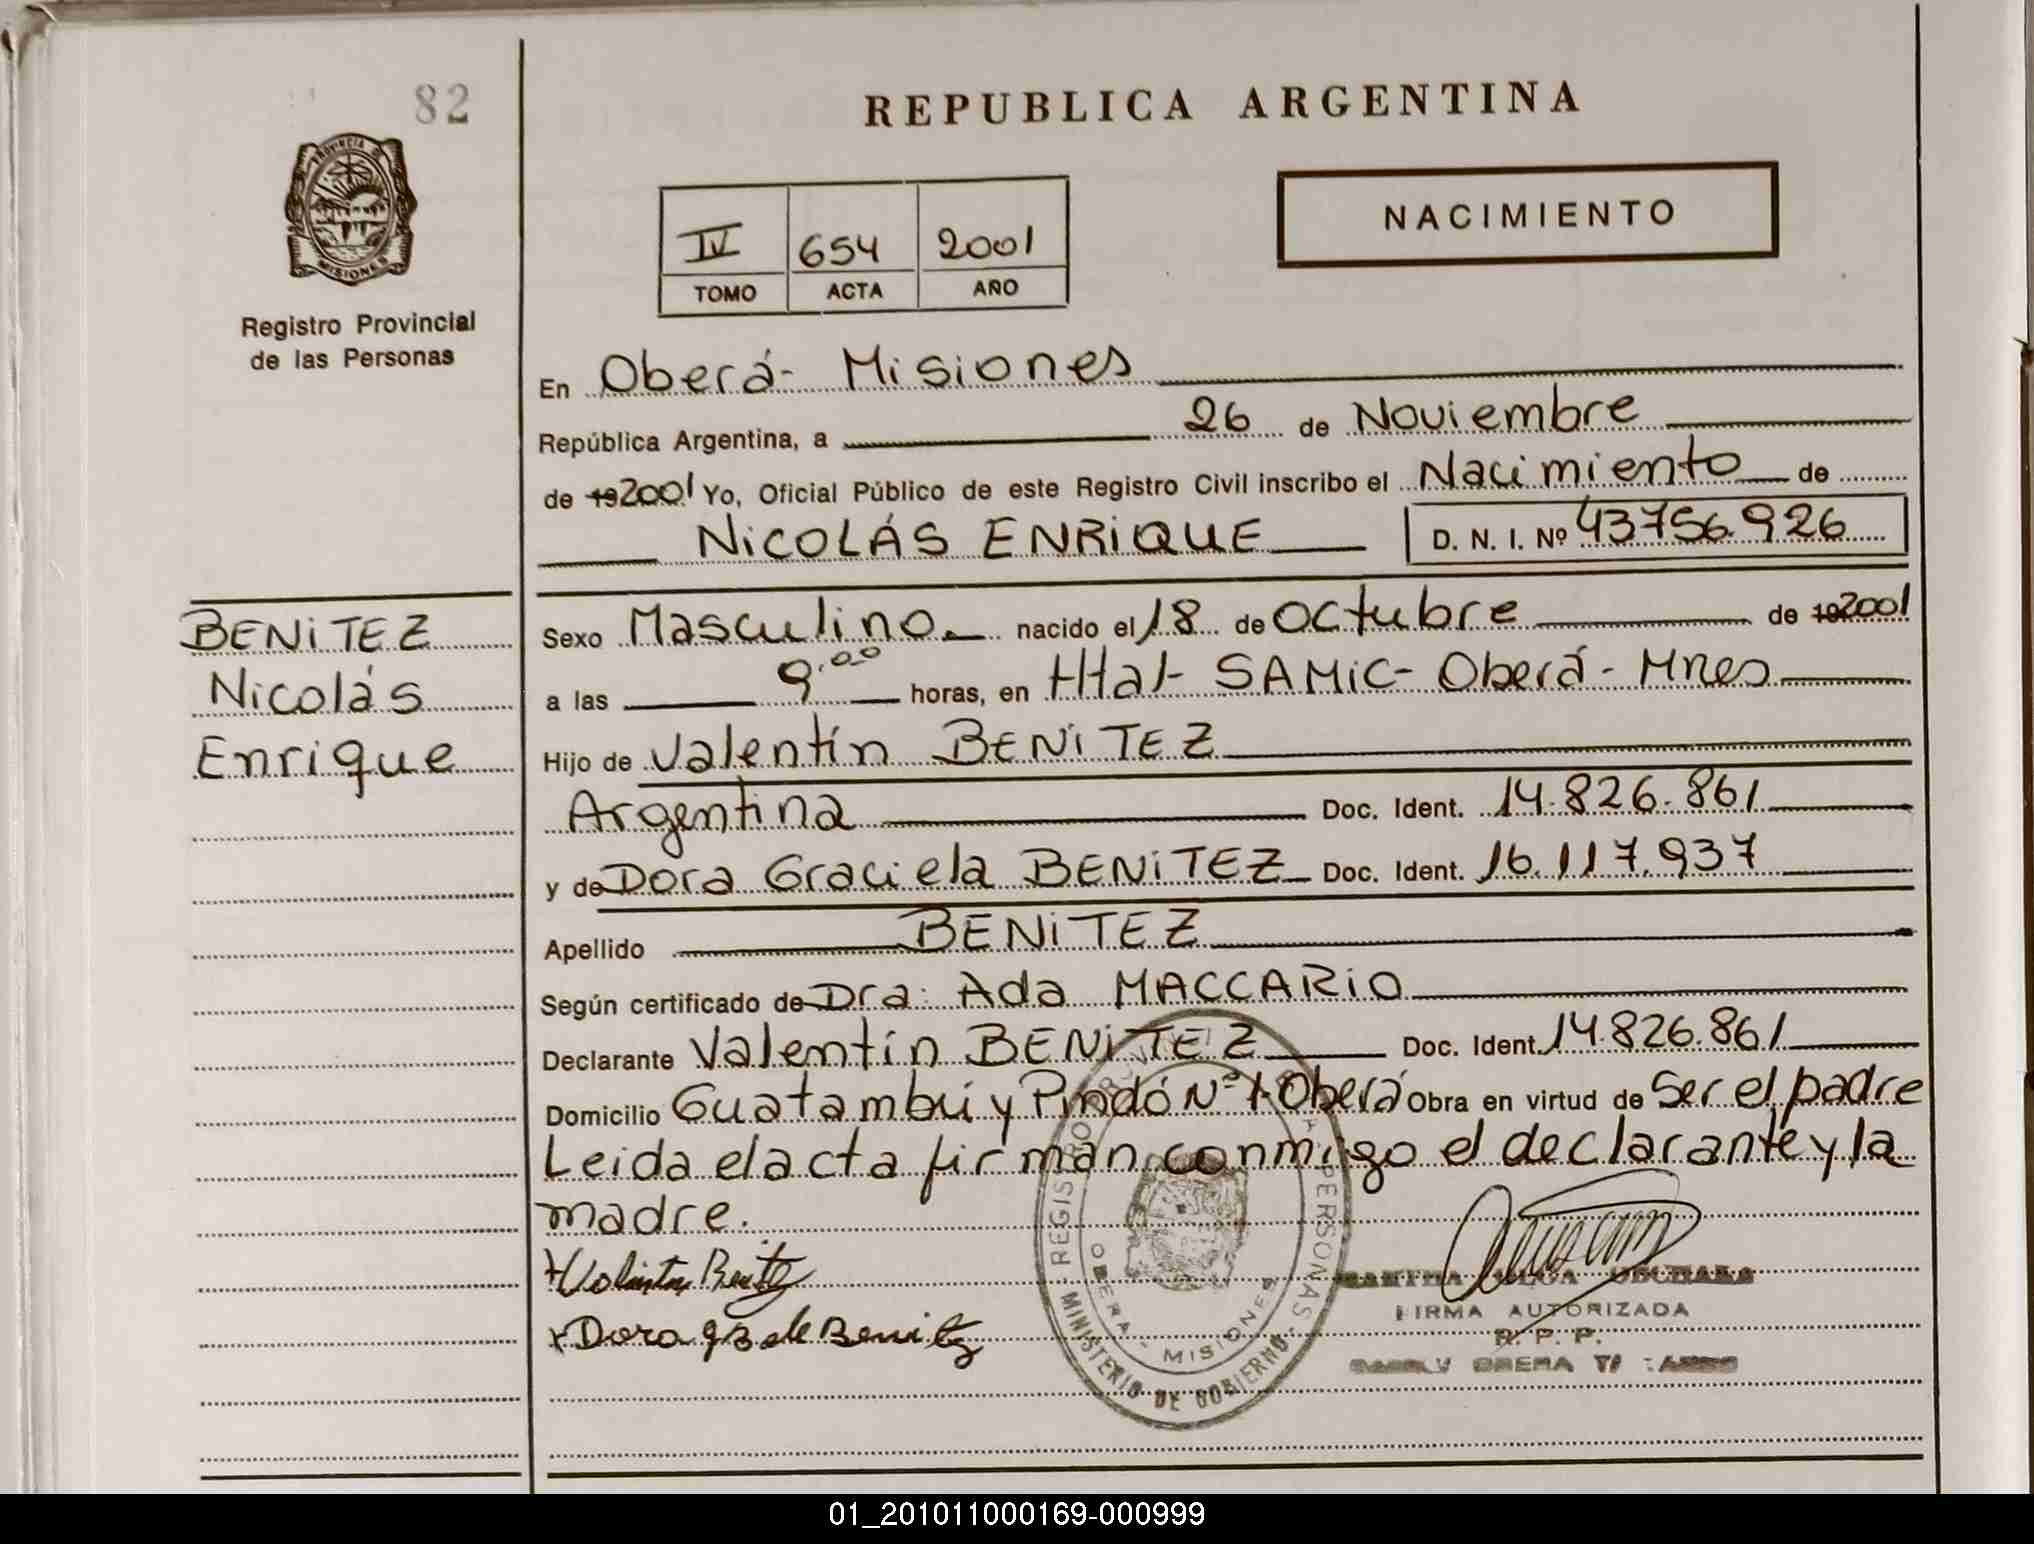 82
REPUBLICA ARGENTINA
PROVINCIA DE
MISIONES
NACIMIENTO
IV 654 2001
TOMO ACTA AÑO
Registro Provincial
de las Personas
En Oberá- Misiones
República Argentina, a 26 de Noviembre
de 19 2001 Yo, Oficial Público de este Registro Civil inscribo el Nacimiento de
NICOLÁS ENRIQUE D. N. I. Nº 43756.926
BENITEZ
Nicolás
Enrique
Sexo Masculino nacido el 18 de Octubre de 19 2001
a las 9.00 horas, en Htal- SAMIC- Oberá- Mnes
Hijo de Valentín BENITEZ
Argentina Doc. Ident. 14.826.861
y de Dora Graciela BENITEZ Doc. Ident. 16.117.937
Apellido BENITEZ
Según certificado de Dra: Ada MACCARIO
Declarante Valentín BENITEZ Doc. Ident. 14.826.861
Domicilio Guatambú y Pindó Nº 1-Oberá Obra en virtud de Ser el padre
Leida el acta firman conmigo el declarante y la
madre.
REGISTRO PERSONAS
OBERA - MISIONES
MINISTERIO DE GOBIERNO
FIRMA AUTORIZADA
R. P. P.
01_201011000169-000999